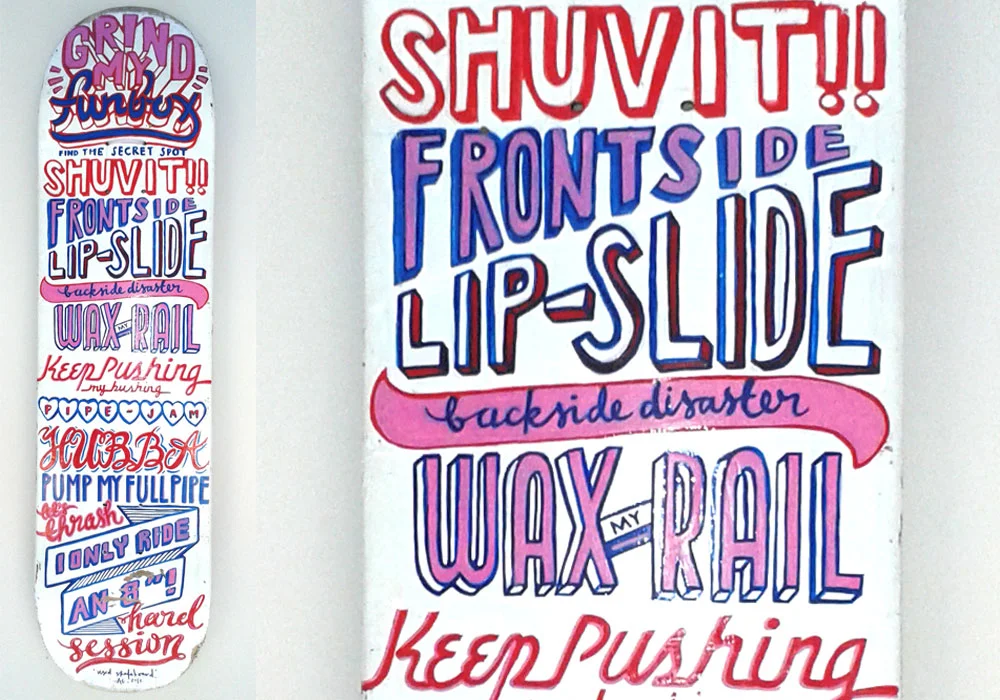 GRIND
MY
funbox
FIND THE SECRET SPOT
SHUVIT!!
FRONTSIDE
LIP-SLIDE
backside disaster
WAX MY RAIL
Keep Pushing
my bushing
PIPE-JAM
HUBBA
PUMP MY FULLPIPE
let's
thrash
I ONLY RIDE
AN 8"!
hard
session
"used skateboard"
SHUVIT!!
FRONTSIDE
LIP-SLIDE
backside disaster
WAX MY RAIL
Keep Pushing